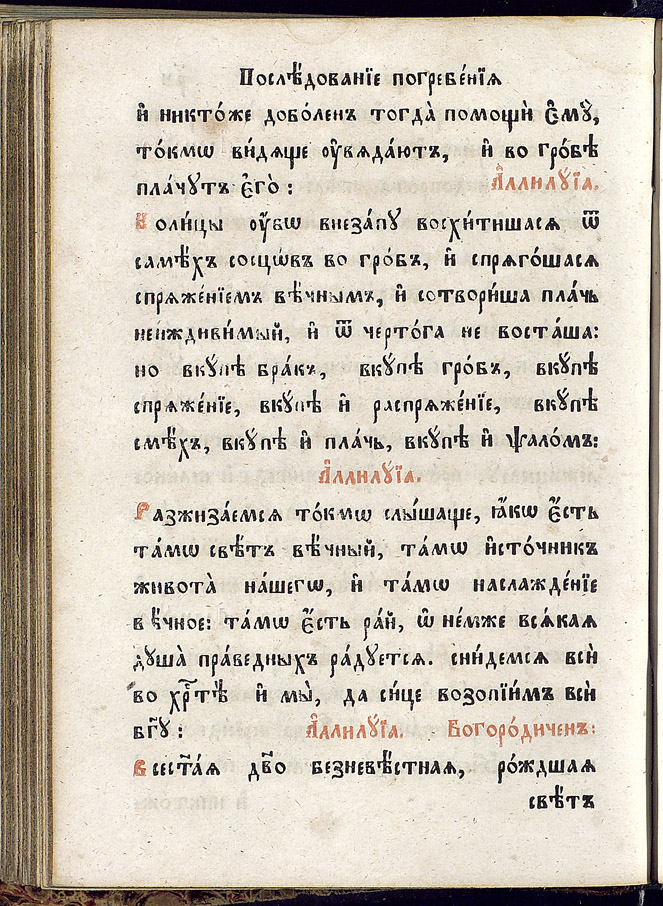 Послѣ́дованїе погребе́нїѧ
и҆ никто́же дово́ленъ тогда̀ помощѝ є҆мꙋ̀,
то́кмѡ ви́дѧще ᲂу҆вѧда́ютъ, и҆ во гро́бѣ
пла́чꙋтъ є҆го̀: А҆ллилꙋ́їа.
Коли́цы ᲂу҆́бѡ внеза́пꙋ восхи́тишасѧ ѿ
самѣ́хъ сосцѡ́въ во гро́бъ, и҆ спрѧго́шасѧ
спрѧже́нїемъ вѣ́чнымъ, и҆ сотвори́ша пла́чь
неиждиви́мый, и҆ ѿ черто́га не воста́ша:
но вкꙋ́пѣ бра́къ, вкꙋ́пѣ гро́бъ, вкꙋ́пѣ
спрѧже́нїе, вкꙋ́пѣ и҆ распрѧже́нїе, вкꙋ́пѣ
смѣ́хъ, вкꙋ́пѣ и҆ пла́чь, вкꙋ́пѣ и҆ ѱало́мъ:
А҆ллилꙋ́їа.
Разжиза́емсѧ то́кмѡ слы́шаще, ꙗ҆́кѡ є҆́сть
та́мѡ свѣ́тъ вѣ́чный, та́мѡ и҆сто́чникъ
живота̀ на́шегѡ, и҆ та́мѡ наслажде́нїе
вѣ́чное: та́мѡ є҆́сть ра́й, ѡ҆ не́мже всѧ́каѧ
дꙋша̀ пра́ведныхъ ра́дꙋетсѧ. сни́демсѧ всѝ
во хрⷭ҇тѣ̀ и҆ мы̀, да си́це возопїи́мъ всѝ
бг҃ꙋ: А҆ллилꙋ́їа. Богоро́диченъ:
Всест҃а́ѧ дв҃о безневѣ́стнаѧ, ро́ждшаѧ
свѣ́тъ